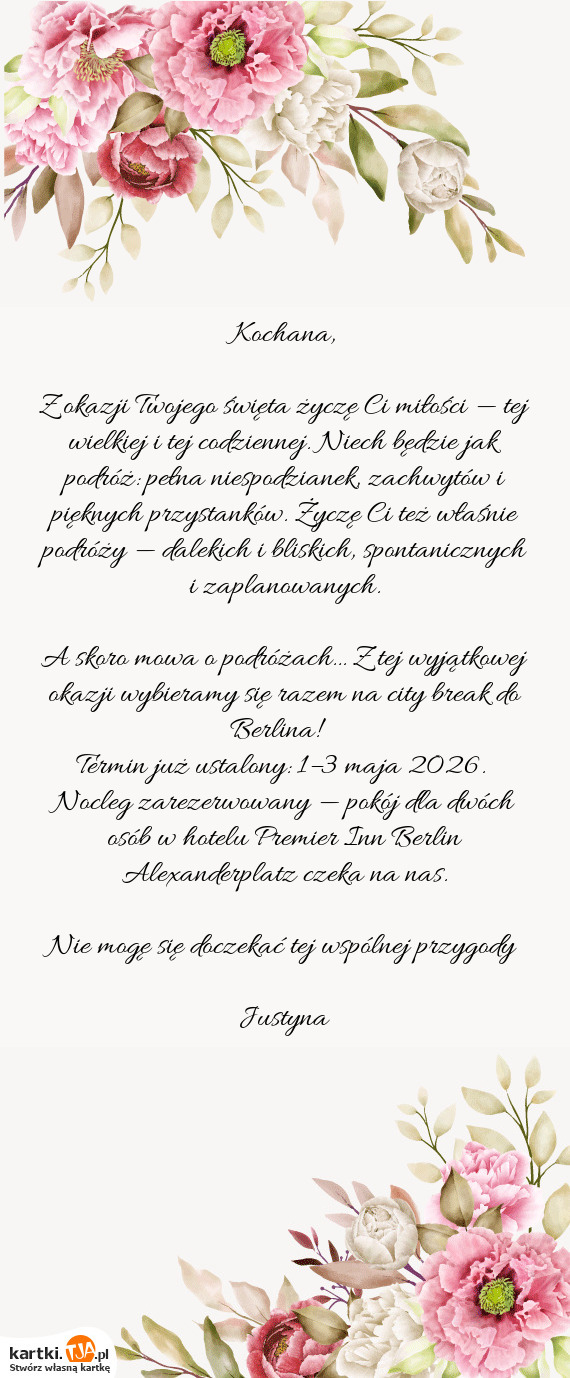 Kochana,
Z okazji Twojego święta życzę Ci miłości – tej
wielkiej i tej codziennej. Niech będzie jak
podróż: pełna niespodzianek, zachwytów i
pięknych przystanków. Życzę Ci też właśnie
podróży – dalekich i bliskich, spontanicznych
i zaplanowanych.
A skoro mowa o podróżach... Z tej wyjątkowej
okazji wybieramy się razem na city break do
Berlina!
Termin już ustalony: 1–3 maja 2026.
Nocleg zarezerwowany – pokój dla dwóch
osób w hotelu Premier Inn Berlin
Alexanderplatz czeka na nas.
Nie mogę się doczekać tej wspólnej przygody
Justyna
kartki.TJA.pl
Stwórz własną kartkę